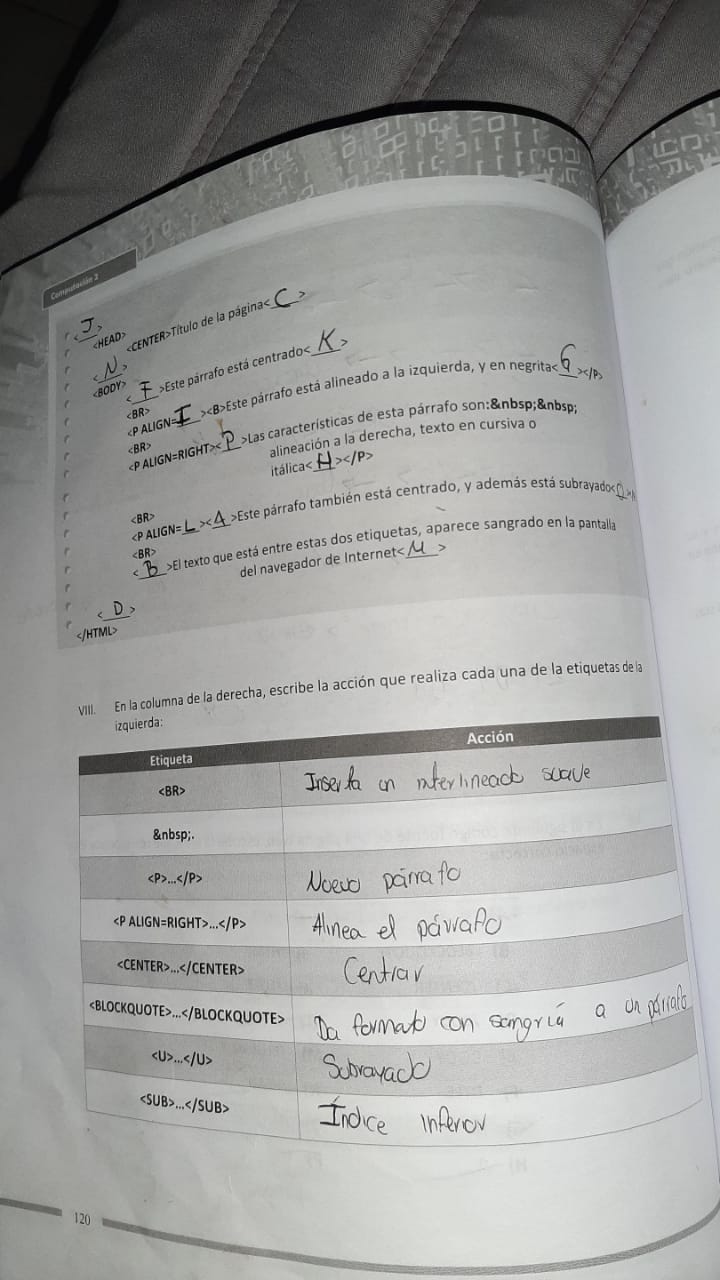 Computación 2
<J>
<HEAD>
<CENTER>Título de la página<C>
<N>
<BODY>
<F>Este párrafo está centrado<K>
<BR>
<P ALIGN=I><B>Este párrafo está alineado a la izquierda, y en negrita<G></P>
<BR>
<P ALIGN=RIGHT><P>Las características de esta párrafo son:&nbsp;&nbsp;
alineación a la derecha, texto en cursiva o
itálica<H></P>
<BR>
<P ALIGN=L><A>Este párrafo también está centrado, y además está subrayado<
<BR>
<B>El texto que está entre estas dos etiquetas, aparece sangrado en la pantalla
del navegador de Internet<M>
<D>
</HTML>
VIII. En la columna de la derecha, escribe la acción que realiza cada una de la etiquetas de la
izquierda:
Etiqueta Acción
<BR> Inserta un interlineado suave
&nbsp;.
<P>...</P> Nuevo párrafo
<P ALIGN=RIGHT>...</P> Alinea el párrafo
<CENTER>...</CENTER> Centrar
<BLOCKQUOTE>...</BLOCKQUOTE> Da formato con sangría a un párrafo
<U>...</U> Subrayado
<SUB>...</SUB> Índice inferior
120